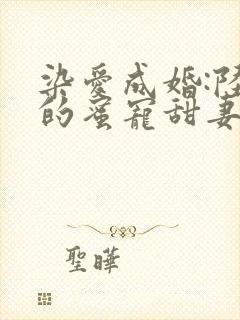 染愛成婚:陸
的蜜寵甜妻
聖曄